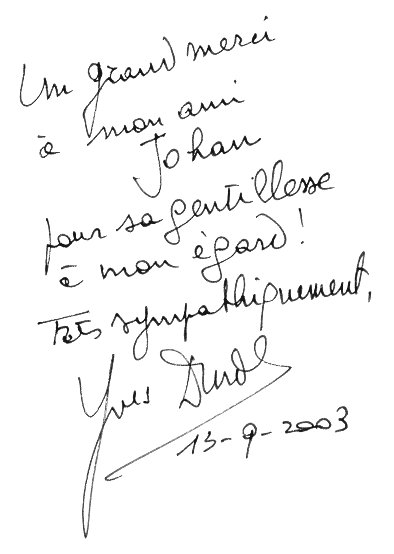 Un grand merci
à mon ami
Johan
pour sa gentillesse
à mon égard !
Très sympathiquement,
Yves
13-9-2003